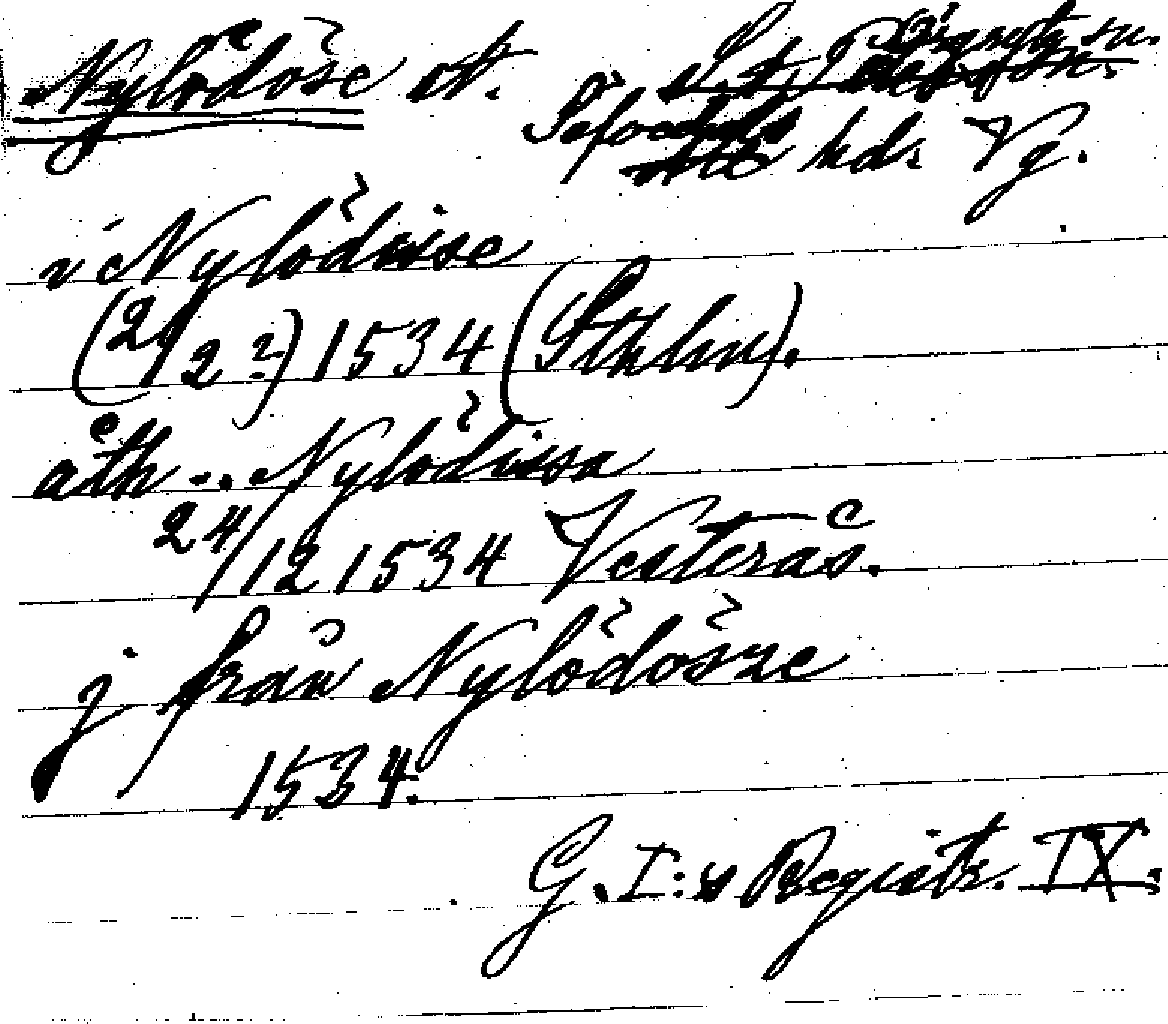 Nylödöse st.
Sefvedals hd. Vg.
i Nylödwse
(21/2 ?) 1534 (Sthlm).
åth .. Nylödissa
24/12 1534 Vesterås.
j från Nylödösze
1534.
G. I:s Registr. IX.